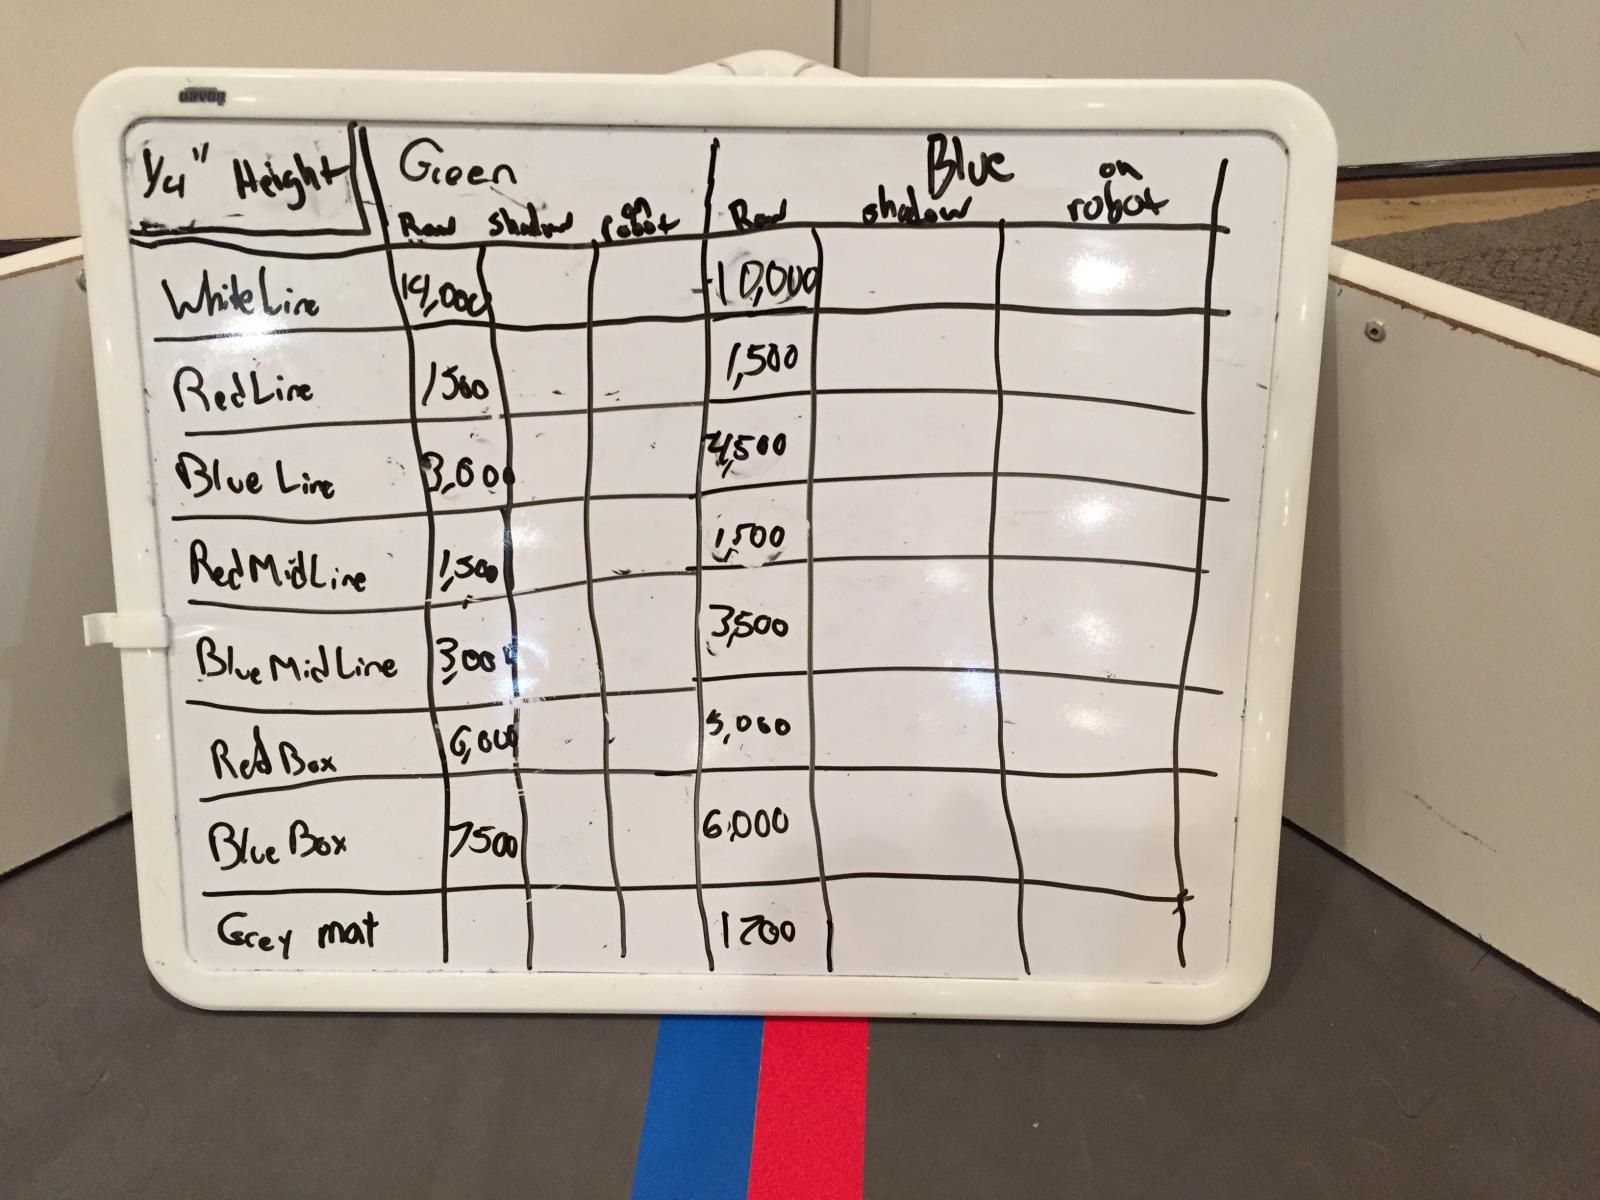 davoy
1/4" Height Green Blue
Raw shadow on robot Raw shadow on robot
White Line 14,000 10,000
Red Line 1500 1,500
Blue Line 3,000 4,500
Red Mid Line 1,500 1,500
Blue Mid Line 3,000 3,500
Red Box 6,000 5,000
Blue Box 7500 6,000
Grey mat 1200